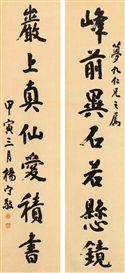 夢九仁兄之属
峰前異石若懸鏡
巖上真仙愛積書
甲寅三月楊守敬